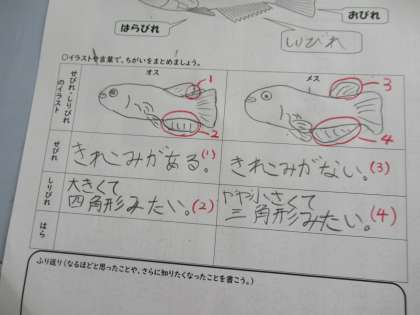 はらびれ
おびれ
しりびれ
○イラストや言葉で、ちがいをまとめましょう。
オス
メス
せびれ・しりびれのイラスト
1
2
3
4
せびれ
きれこみがある。(1)
きれこみがない。(3)
しりびれ
大きくて
四角形みたい。(2)
やや小さくて
三角形みたい。(4)
はら
ふり返り(なるほどと思ったことや、さらに知りたくなったことを書こう。)